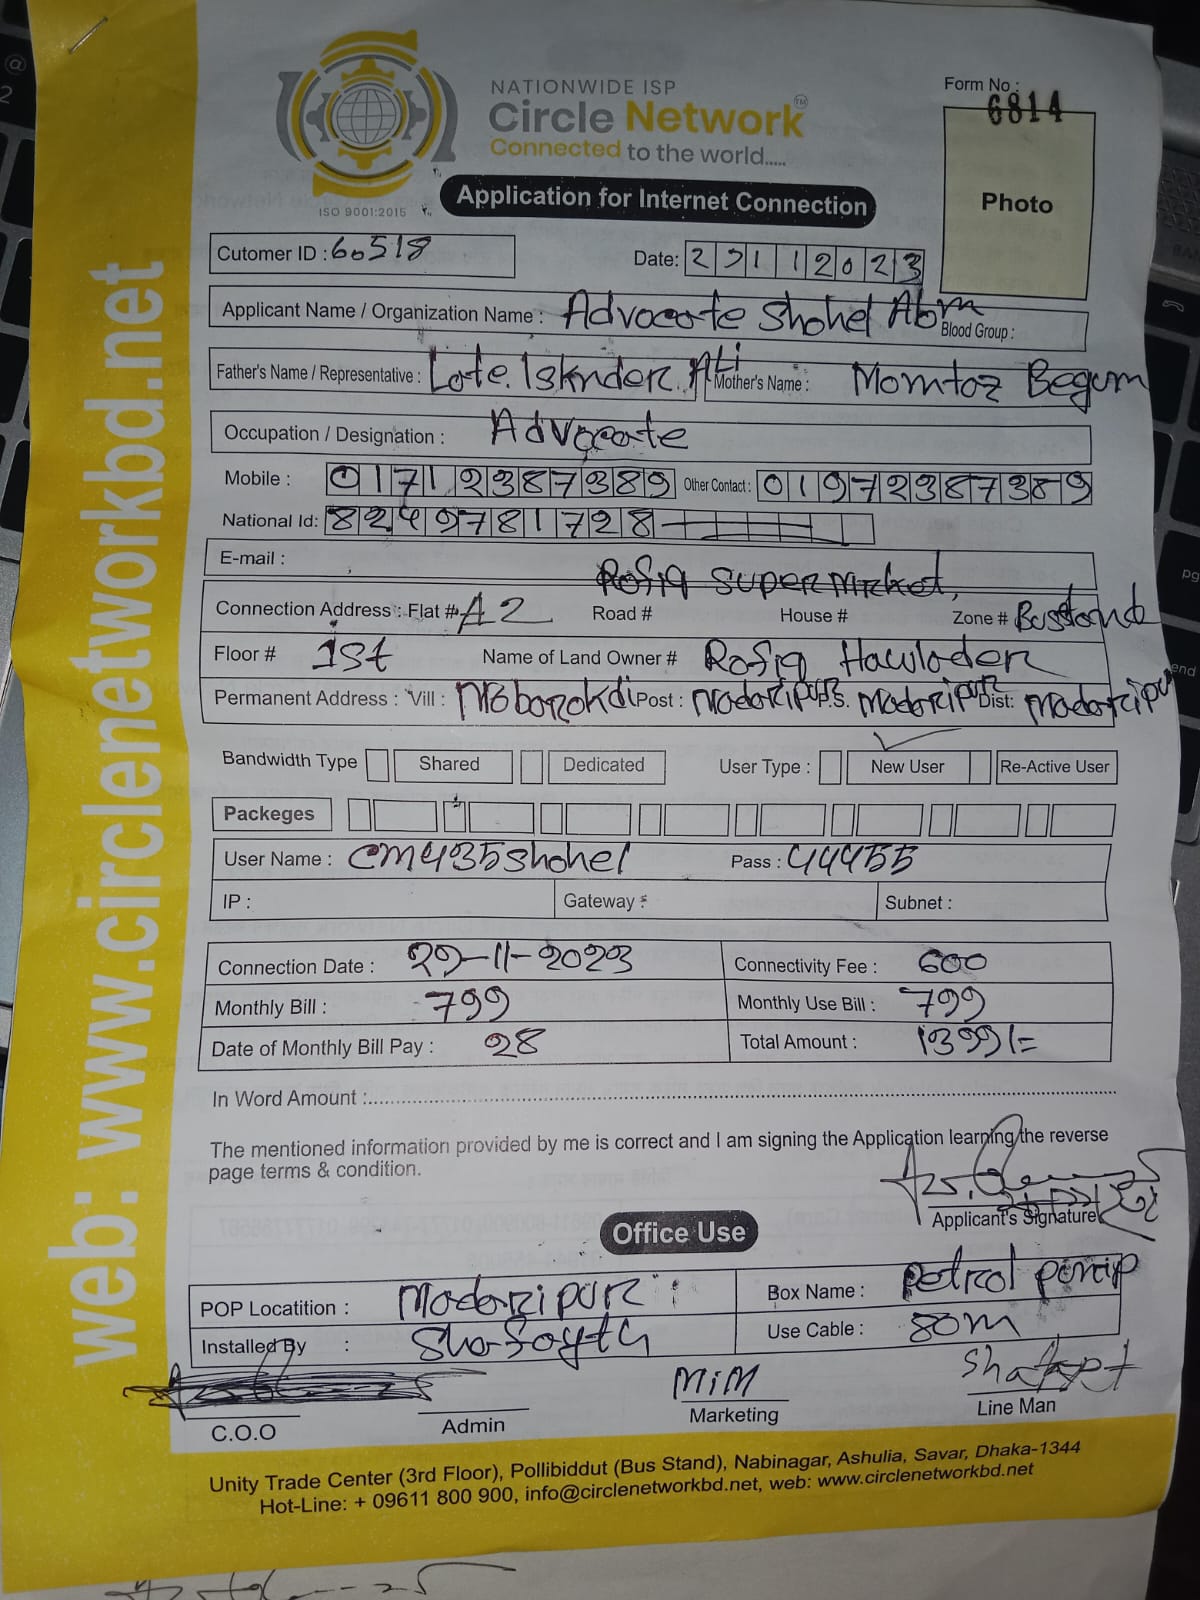 NATIONWIDE ISP
Circle Network
Connected to the world.....
ISO 9001:2015
Form No : 6814
Photo
Application for Internet Connection
Cutomer ID : 60518
Date: 29112023
Applicant Name / Organization Name : Advocate Shohel Abm Blood Group :
Father's Name / Representative : Late. Isknder Ali Mother's Name : Momtaz Begum
Occupation / Designation : Advocate
Mobile : 01712387389 Other Contact : 01972387389
National Id: 8249781728
E-mail :
Rofiq super Mrket,
Connection Address : Flat # A2 Road # House # Zone # Busstand
Floor # 1st Name of Land Owner # Rofiq Hawlader
Permanent Address : Vill : Post : Madaripur P.S. Madaripur Dist: Madaripur
Bandwidth Type Shared Dedicated User Type : New User Re-Active User
Packeges
User Name : cm435shohel Pass : 44455
IP : Gateway : Subnet :
Connection Date : 29-11-2023 Connectivity Fee : 600
Monthly Bill : 799 Monthly Use Bill : 799
Date of Monthly Bill Pay : 28 Total Amount : 1399/=
In Word Amount :
The mentioned information provided by me is correct and I am signing the Application learning the reverse
page terms & condition.
Applicant's Signature
Office Use
POP Locatition : Madaripur Box Name : Petrol pump
Installed By : Use Cable : 80m
MiM
C.O.O Admin Marketing Line Man
Unity Trade Center (3rd Floor), Pollibiddut (Bus Stand), Nabinagar, Ashulia, Savar, Dhaka-1344
Hot-Line: + 09611 800 900, info@circlenetworkbd.net, web: www.circlenetworkbd.net
web: www.circlenetworkbd.net